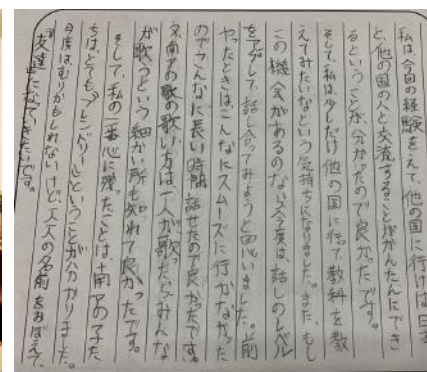 私は、今回の経験をえて、他の国に行けば日
と、他の国の人と交流することがかんたんにでき
るということが、分かったので良かったです。
そして、私は、少しだけ他の国に行って教科を教
えてみたいなという気持ちになりました。また、もし
この機会があるのなら、今度は、話しのレベル
をアップして、話し合ってみようと思いました。前
やったときは、こんなにスムーズに行かなかった
のでこんなに長い時間話せたので良かったです。
又、南アの歌の歌い方は、一人が歌ったらみんな
が歌うという細かい所も知れて良かったです。
そして、私の一番心に残ったことは、南アの子た
ちは、とてもフレンドリーということが分かりました。
今度は、むりかもしれないけど、一人一人の名前をおぼえて、
友達になっていきたいです。